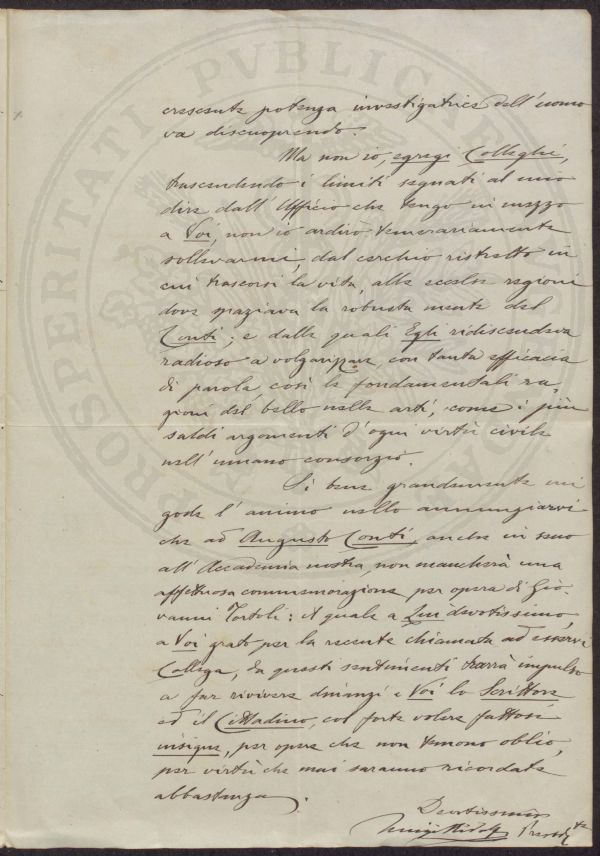 PROSPERITATI PVBLICAE
crescente potenza investigatrice dell'uomo
va discuoprendo.
Ma non io, egregi Colleghi,
trascendendo i limiti segnati al mio
dire dall'Ufficio che tengo in mezzo
a Voi, non io ardirò temerariamente
sollevarmi, dal cerchio ristretto in
cui trascorsi la vita, alle eccelse regioni
dove spaziava la robusta mente del
Conti; e dalle quali Egli ridiscendeva
radioso a volgarizzare con tanta efficacia
di parola, così le fondamentali ra-
gioni del bello nelle arti, come i più
saldi argomenti d'ogni virtù civile
nell'umano consorzio.
Sì bene grandemente mi
gode l'animo nello annunziarvi
che ad Augusto Conti, anche in seno
all'Accademia nostra, non mancherà una
affettuosa commemorazione per opera di Gio-
vanni Tortoli: il quale a Lui devotissimo,
a Voi grato per la recente chiamata ad esservi
Collega, da questi sentimenti trarrà impulso
a far rivivere dinanzi a Voi lo Scrittore
ed il Cittadino, col forte volere fattosi
insigne, per opere che non temono oblio,
per virtù che mai saranno ricordate
abbastanza.
Devotissimo
Luigi Ridolfi Presid.te